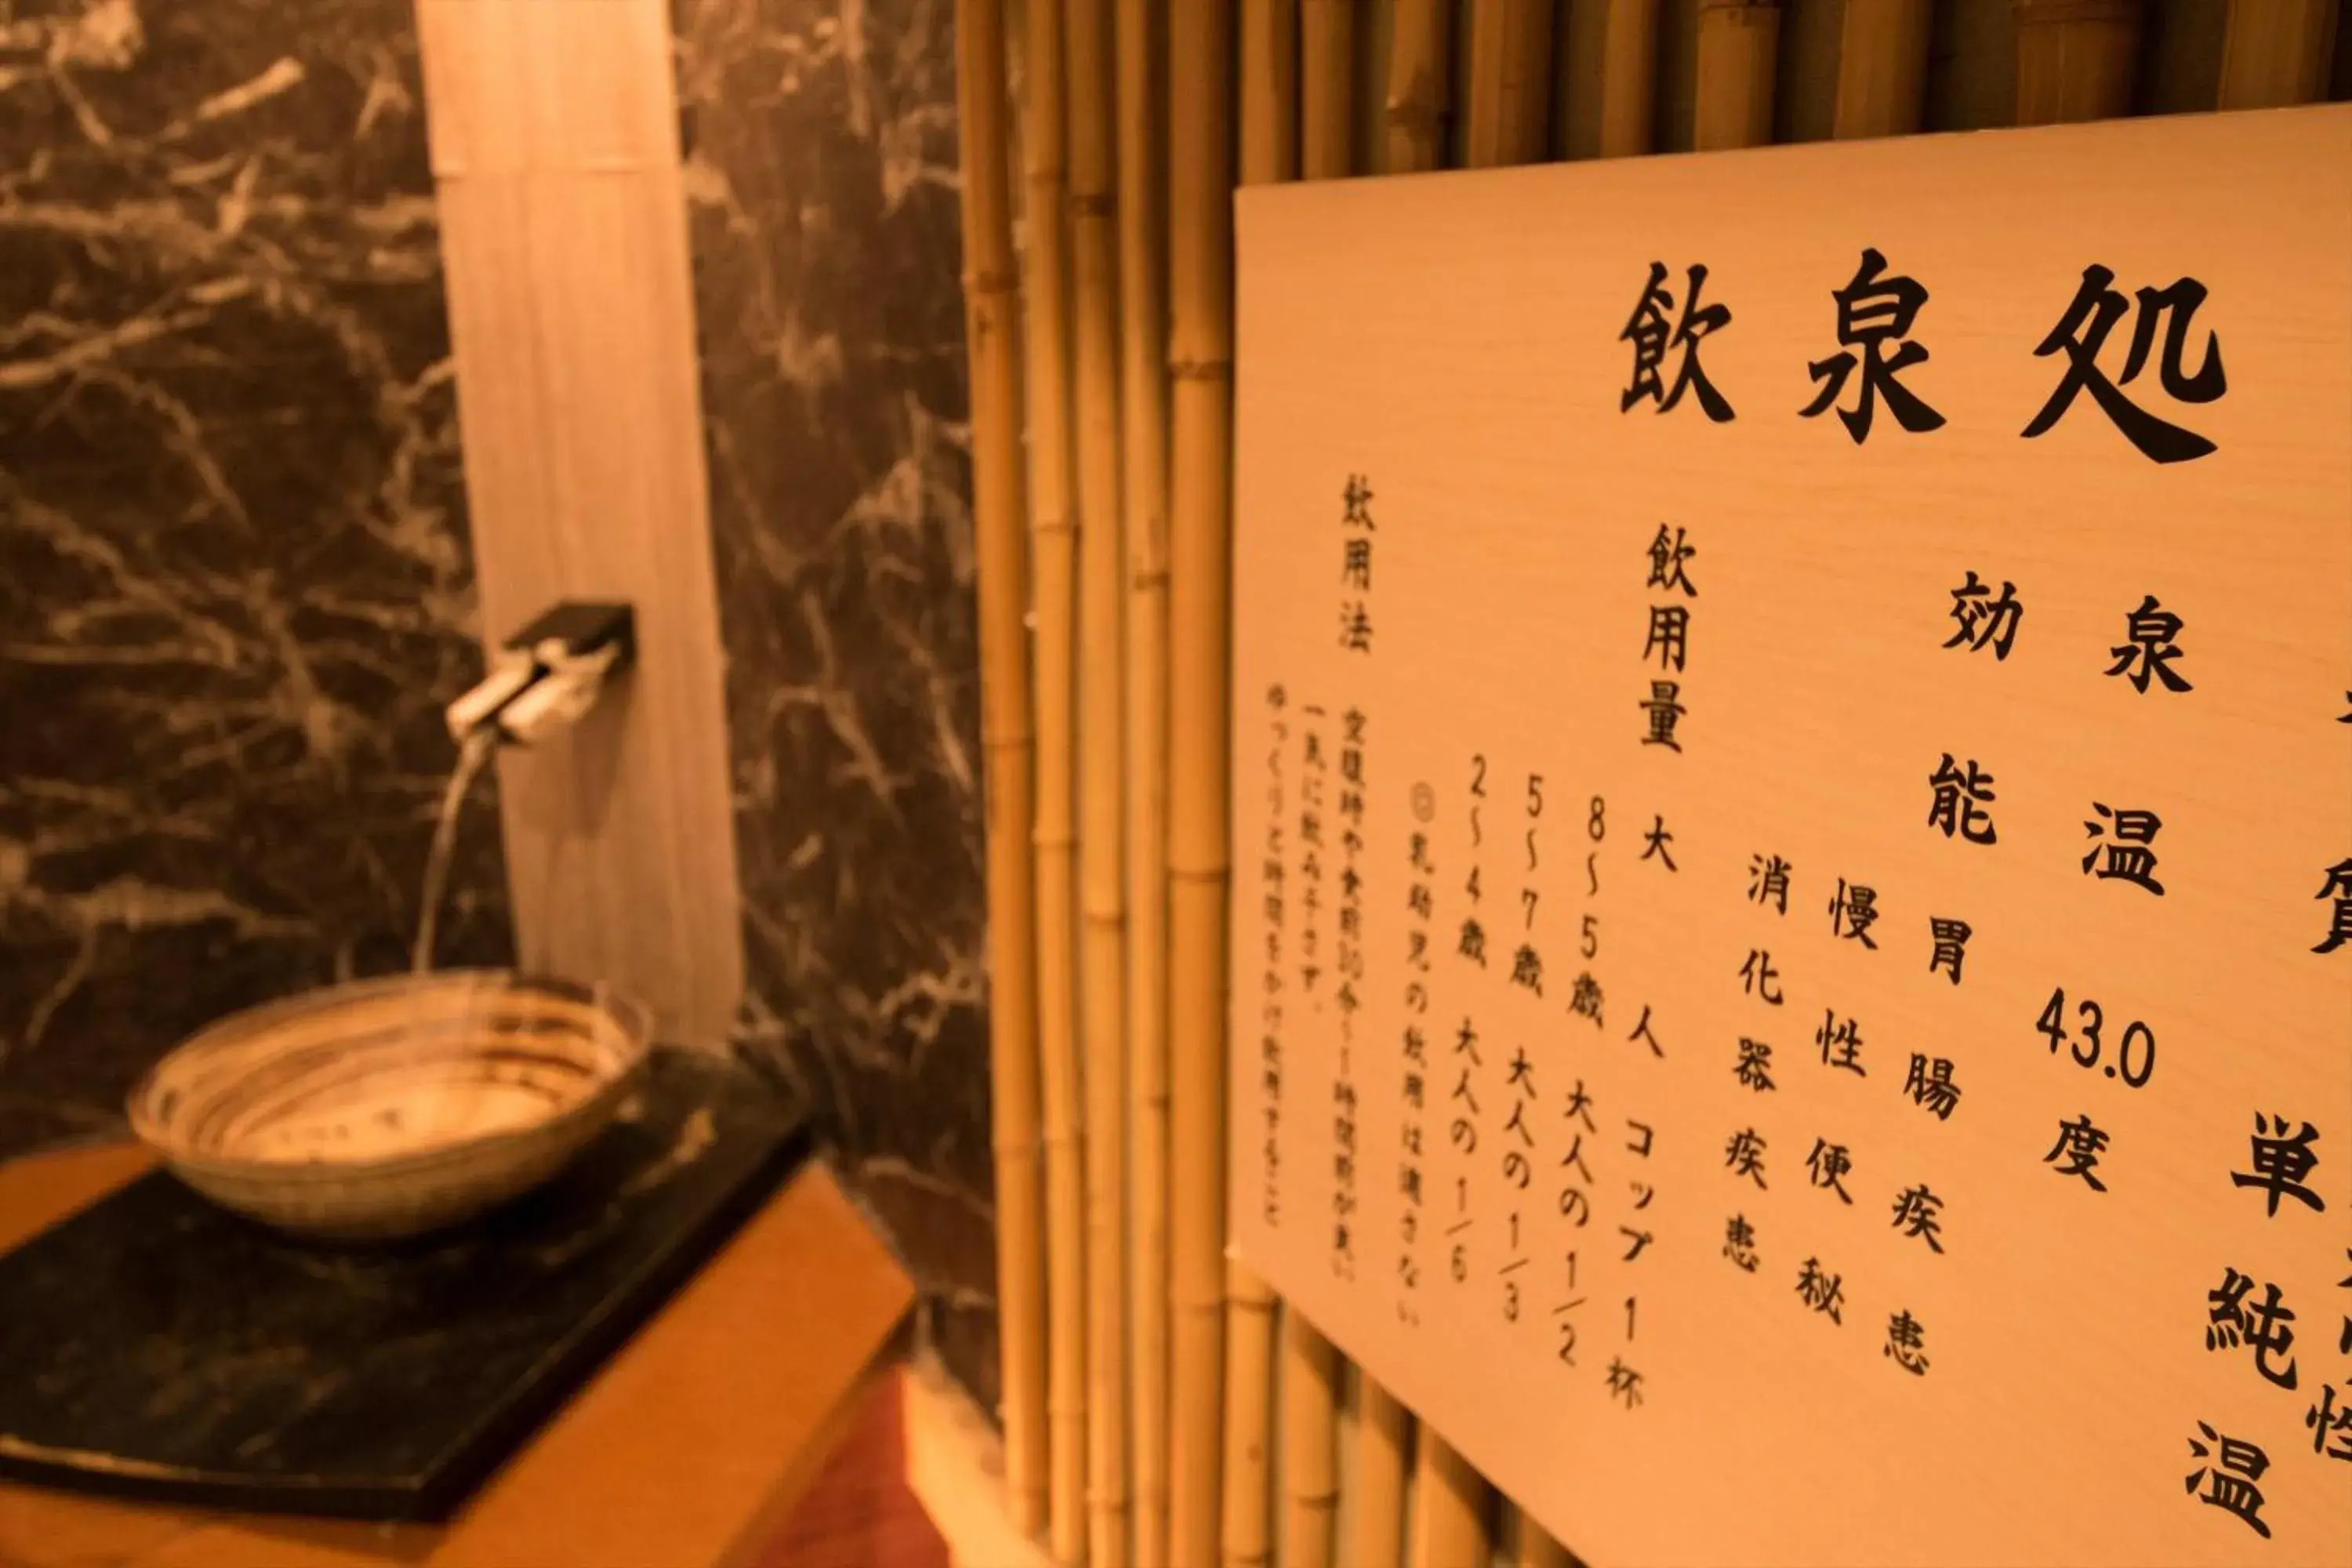 飲泉処
質 単純温
性
泉温 43.0度
効能 胃腸疾患
慢性便秘
消化器疾患
飲用量 大人 コップ1杯
8～5歳 大人の1/2
5～7歳 大人の1/3
2～4歳 大人の1/6
◎乳幼児の飲用は適さない
飲用法 空腹時や食前30分～1時間前が良い
一気に飲み干さず、
ゆっくりと時間をかけ飲用すること